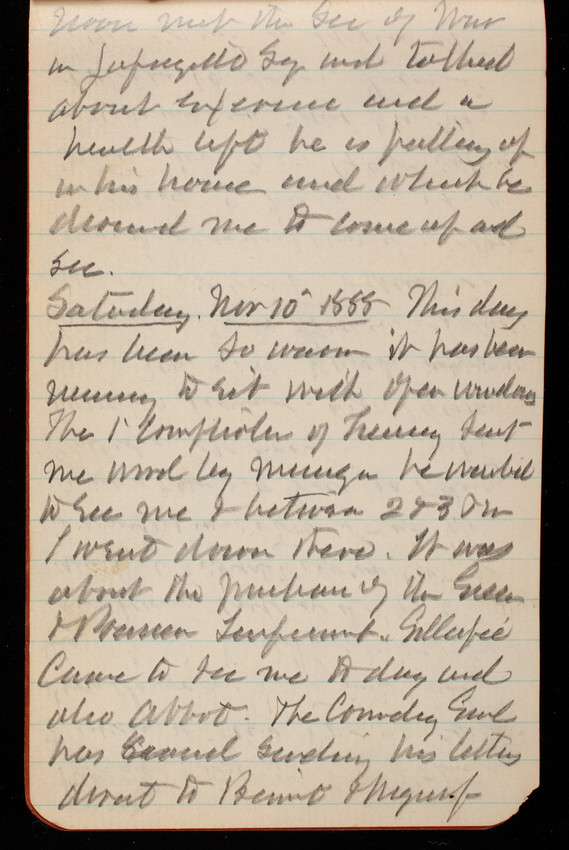 noon met the Sec of War
in Lafayette Sq and talked
about and a
health left he is putting up
in his house and which he
desired me to come up and
see.
Saturday. Nov 10 1888 This day
has been so warm it has been
necessary to sit with open windows
The 1 Comptroller of Treasury sent
me word by messenger he wanted
to see me & between 2 & 3 Pm
I went down there. It was
about the purchase of the Green
&
Came to see me to day and
also Abbot. The Comdg Genl
has sending his letters
direct to & myself